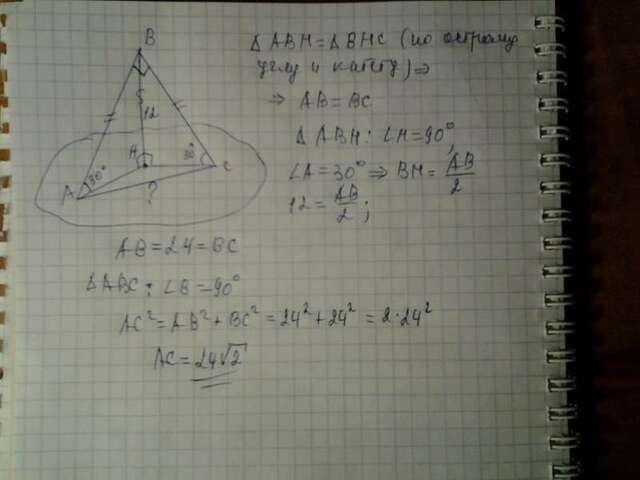 B
12
H
30°
C
30°
A
?
ΔABH=ΔBHC (по острому
углу и катету)⇒
⇒ AB=BC
ΔABH: ∠H=90°,
∠A=30° ⇒ BH=AB/2
12=AB/2;
AB=24=BC
ΔABC: ∠B=90°
AC²=AB²+BC²=24²+24²=2·24²
AC=24√2